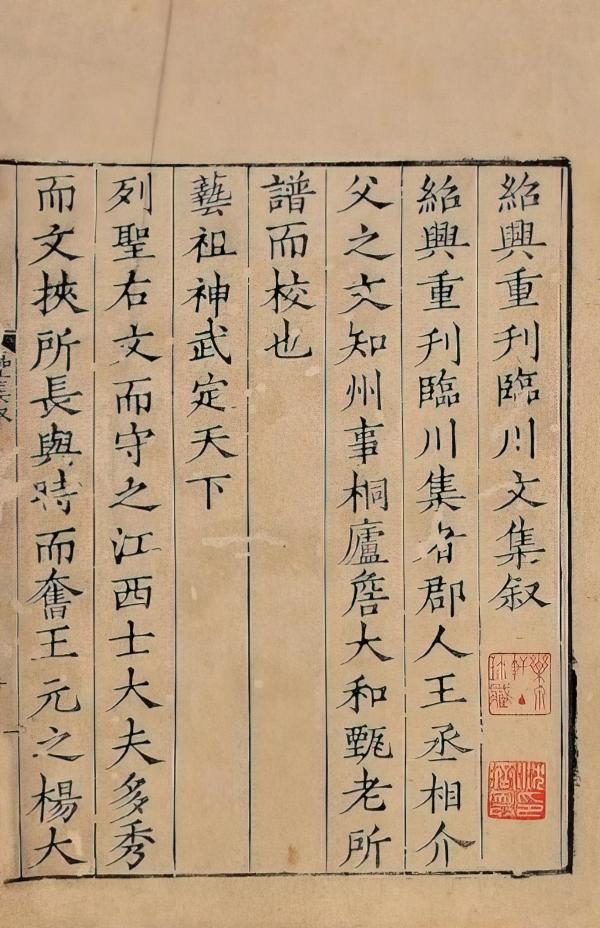 紹興重刊臨川文集叙
紹興重刊臨川集者郡人王丞相介
父之文知州事桐廬詹大和甄老所
譜而校也
藝祖神武定天下
列聖右文而守之江西士大夫多秀
而文挾所長與時而奮王元之楊大